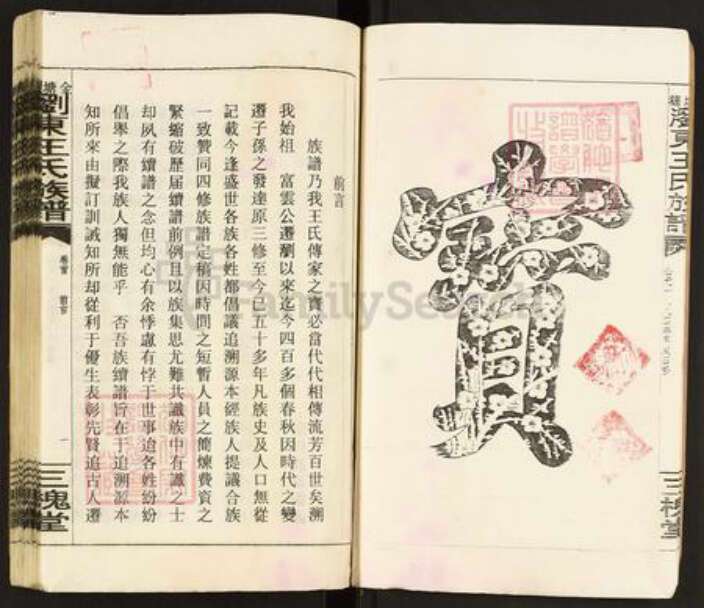 寶
瀏東王氏族譜
三槐堂
前言
族譜乃我王氏傳家之寶必當代代相傳流芳百世矣溯
我始祖 富雲公遷瀏以來迄今四百多個春秋因時代之變
遷子孫之發達原三修至今已五十多年凡族史及人口無從
記載今逢盛世各族各姓都倡議追溯源本經族人提議合族
一致贊同四修族譜定稿因時間之短暫人員之簡煉費資之
緊縮破歷届續譜前例且以族集思尤難共識族中有識之士
却夙有續譜之念但均心有余悸慮有悖于世事迫各姓紛紛
倡舉之際我族人獨無能乎 否吾族續譜旨在于追溯源本
知所來由擬訂訓誡知所却從利于優生表彰先賢追古人遷
金塘
瀏東王氏族譜
卷首 前言
一
三槐堂
FamilySearch